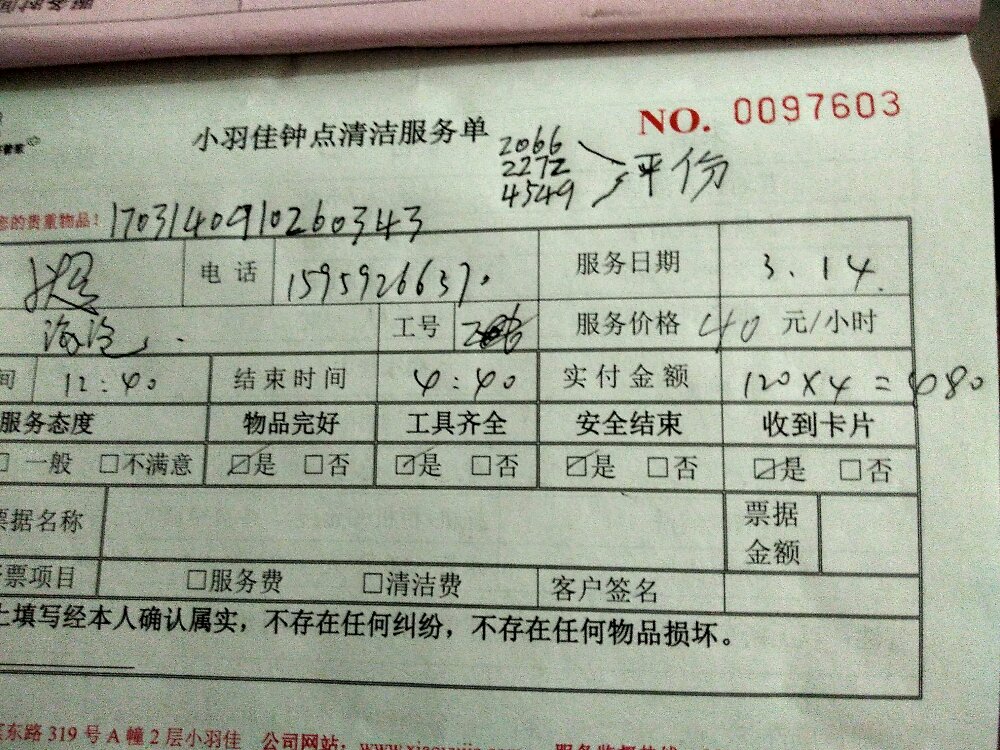 服务时间
NO. 0097603
小羽佳钟点清洁服务单
2066
2272
4549
平份
您的贵重物品！
1703140910260343
电话 1595926637. 服务日期 3.14.
工号 服务价格 40 元/小时
间 12:40 结束时间 4:40 实付金额 120×4=480
服务态度 物品完好 工具齐全 安全结束 收到卡片
□一般 □不满意 ☑是 □否 ☑是 □否 ☑是 □否 ☑是 □否
票据名称 票据金额
票项目 □服务费 □清洁费 客户签名
上填写经本人确认属实，不存在任何纠纷，不存在任何物品损坏。
东路319号A幢2层小羽佳 公司网站：